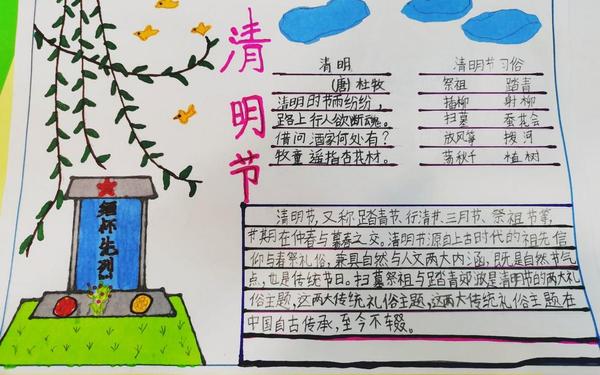 清明节
清明
(唐)杜牧
清明时节雨纷纷,
路上行人欲断魂。
借问酒家何处有?
牧童遥指杏花村。
清明节习俗
祭祖 踏青
插柳 射柳
扫墓 蚕花会
放风筝 拔河
荡秋千 植树
缅怀先烈
清明节,又称踏青节、行清节、三月节、祭祖节等,
节期在仲春与暮春之交。清明节源自上古时代的祖先信
仰与春祭礼俗,兼具自然与人文两大内涵,既是自然节气
点,也是传统节日。扫墓祭祖与踏青郊游是清明节的两大礼
俗主题,这两大传统礼俗主题,这两大传统礼俗主题在
中国自古传承,至今不辍。